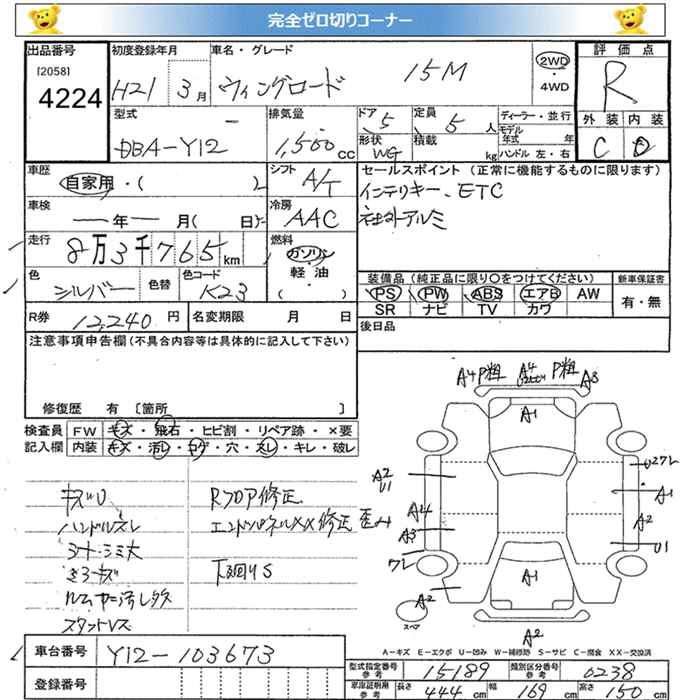 完全ゼロ切りコーナー
出品番号 初度登録年月 車名・グレード 評価点
[2058] 4224 H21 3月 ウィングロード 15M 2WD・4WD R
型式 排気量 ドア 定員 ディーラー・並行 外装 内装
DBA-Y12 1,500cc 5 5人 モデル年式 年 C D
形状 WG 積載 kg ハンドル 左・右
車歴 自家用・( ) シフト A/T セールスポイント (正常に機能するものに限ります)
インテリキー、ETC
車検 年 月( 日) 冷房 AAC 社外アルミ
走行 8万3千765km 燃料 ガソリン・軽油・( )
色 シルバー 色替 色コード K23 装備品 (純正品に限り○をつけてください) 新車保証書
PS PW ABS エアB AW 有・無
SR ナビ TV カワ
R券 12,240円 名変期限 月 日 後日品
注意事項申告欄(不具合内容等は具体的に記入して下さい)
修復歴 有 [箇所 ]
検査員記入欄 FW キズ・飛石・ヒビ割・リペア跡・×要
内装 キズ・汚レ・コゲ・穴・スレ・キレ・破レ
A4 P粗 A4 P粗 A3
A1
キズU Rフロア修正
ハンドルスレ エンドパネルXX修正
シート・シミ大
下回りS
A2 U1 A4 A3 U2 A1 A2 U1
A1
A2 A2
スペア
A-キズ E-エクボ U-凹み W-補修跡 S-サビ C-腐食 XX-交換済
車台番号 Y12-103673 型式指定番号 参考 15189 類別区分番号 参考 0238
登録番号 車庫証明用 参考 長さ 444cm 幅 169cm 高さ 150cm